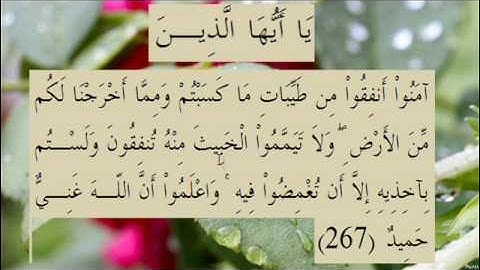 يَا أَيُّهَا الَّذِيـــنَ
آمَنُواْ أَنفِقُواْ مِن طَيِّبَاتِ مَا كَسَبْتُمْ وَمِمَّا أَخْرَجْنَا لَكُم
مِّنَ الأَرْضِ ۖ وَلاَ تَيَمَّمُواْ الْخَبِيثَ مِنْهُ تُنفِقُونَ وَلَسْتُـم
بِآخِذِيهِ إِلاَّ أَن تُغْمِضُواْ فِيهِ ۚ وَاعْلَمُواْ أَنَّ اللّـــهَ غَنِـــيٌّ
حَمِيدٌ (267)